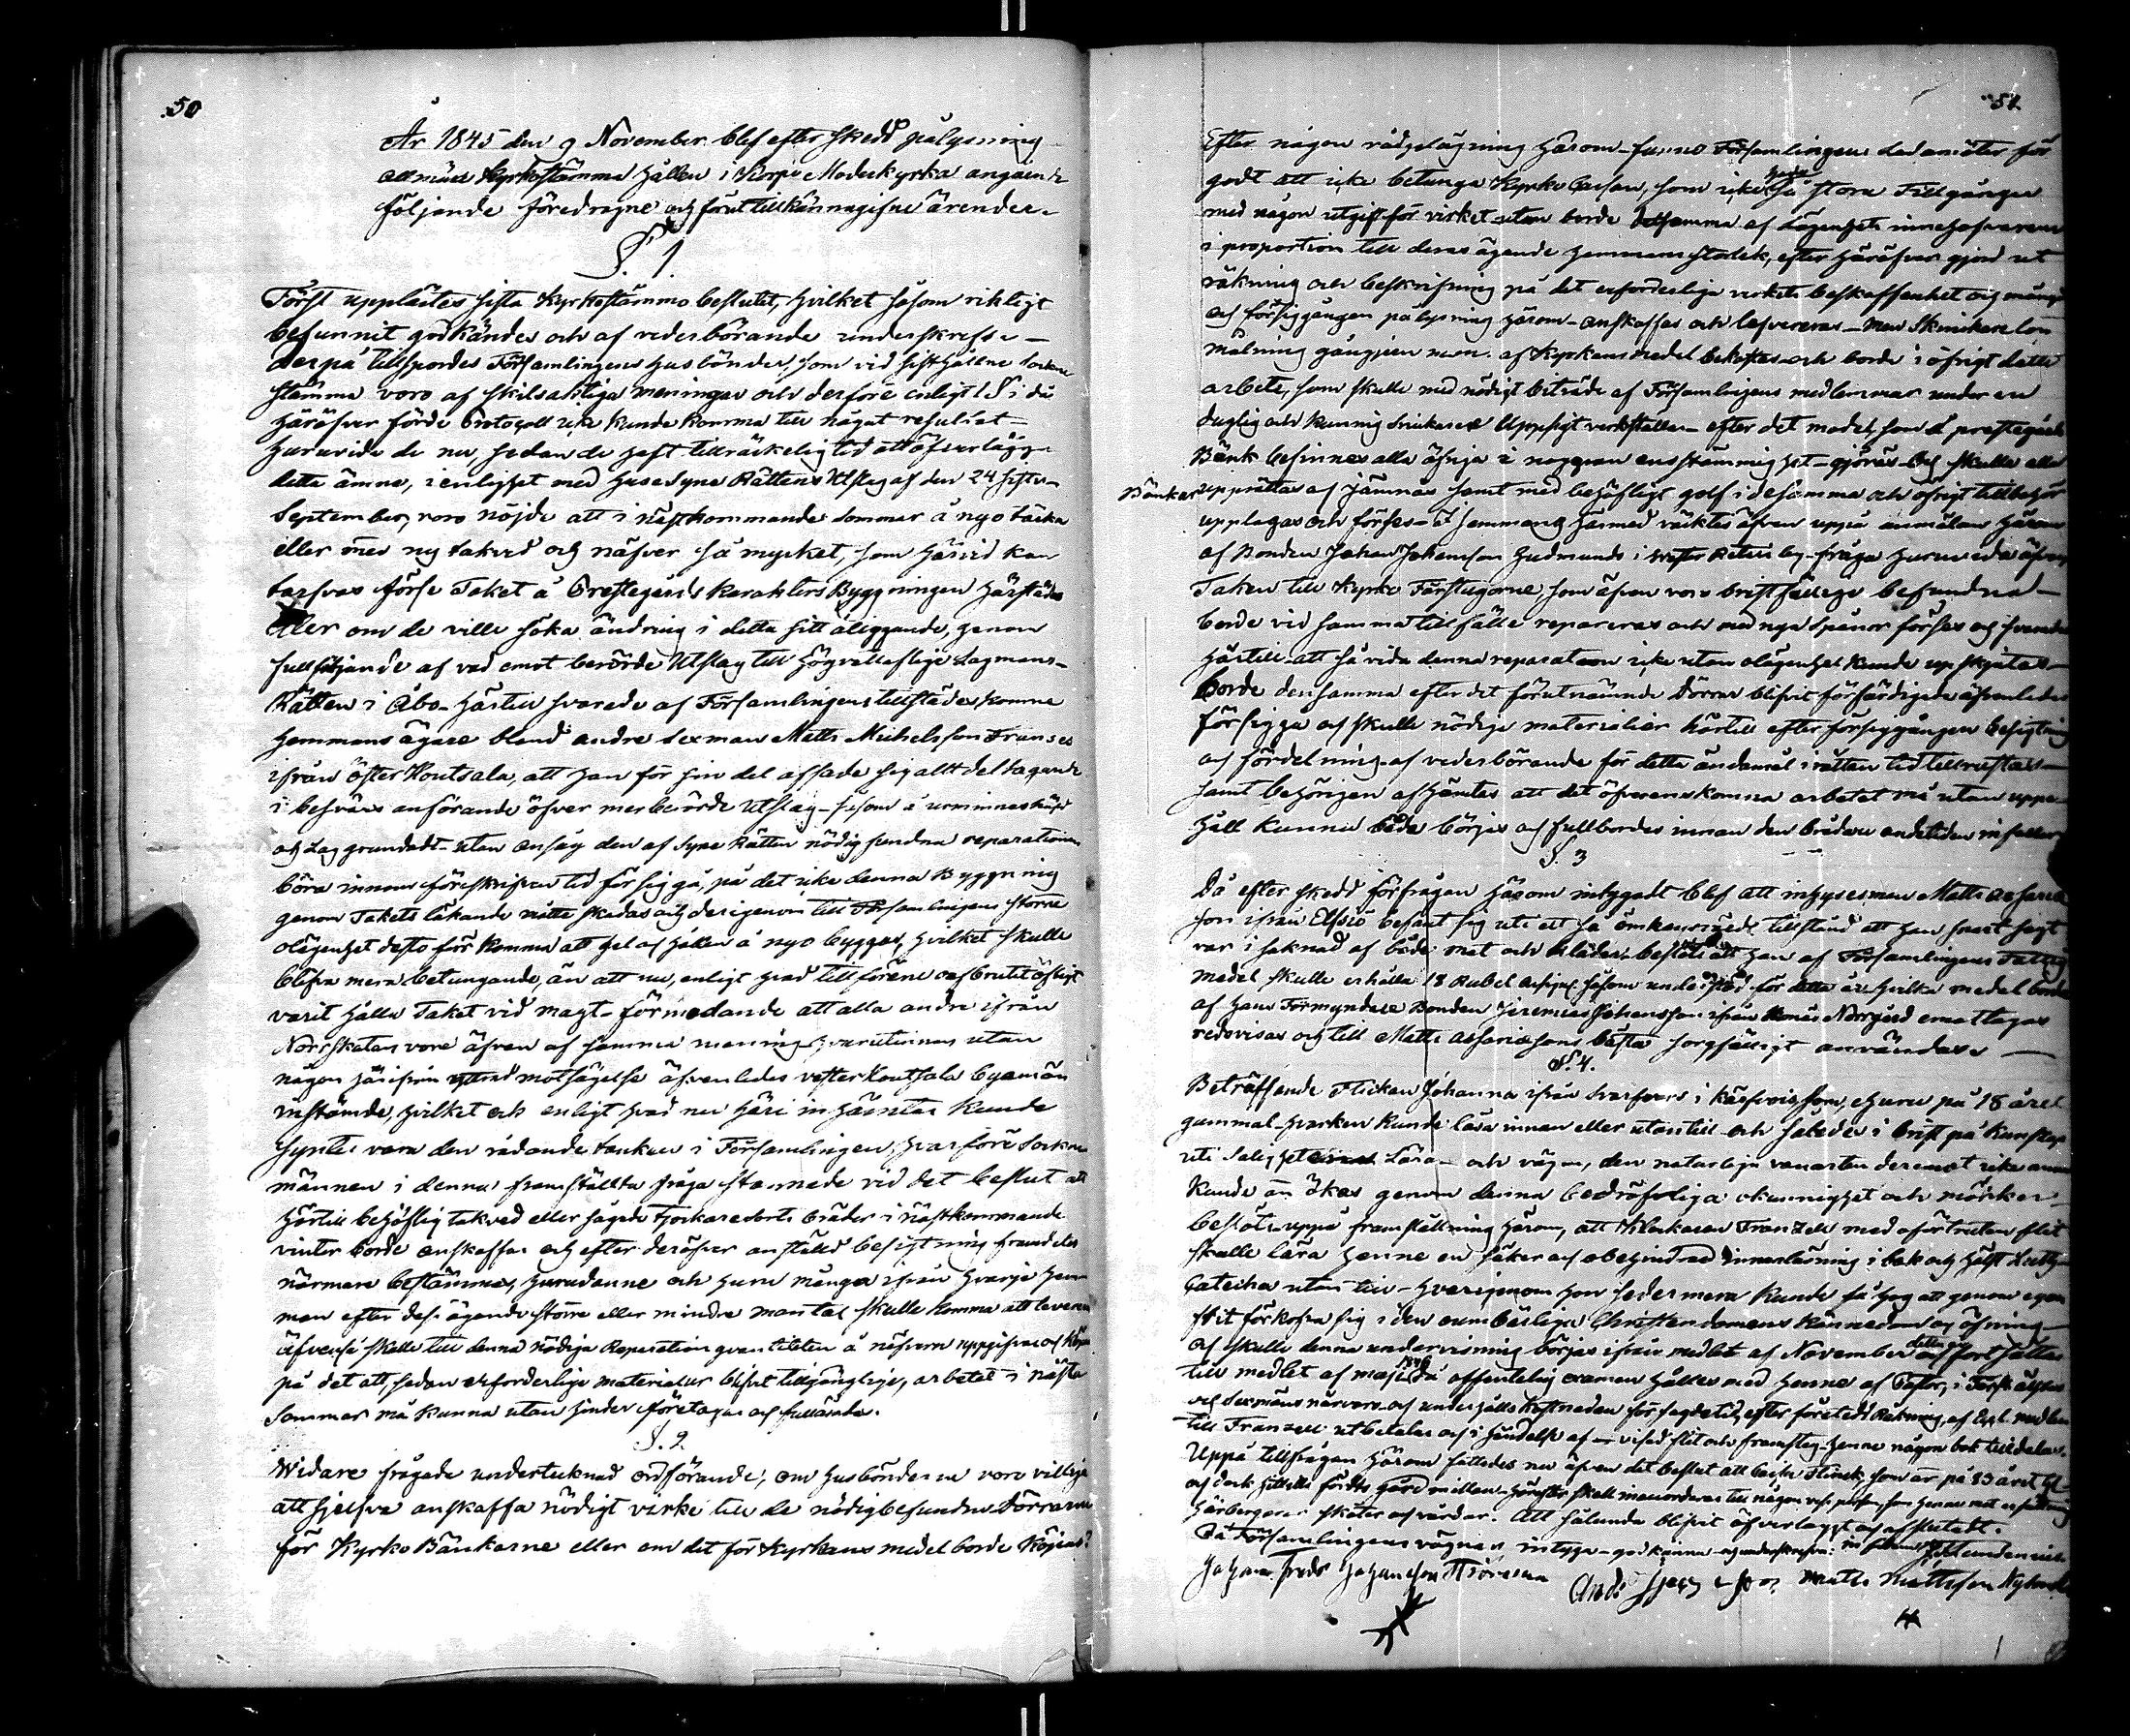 50
År 1845 den 9 November blef efter skedd pålysning
allmän Kyrkostämma hållen i Korpo Moderkyrka angående
följande föredragne och förut tillkännagifne ärender.
§. 1
Först upplästes sista Kyrkostämmo beslutet, hvilket såsom riktigt
befunnit godkändes och af vederbörande underskrefs —
derpå tillspordes Församlingens husbönder, som vid sisthållne Sockne
stämma voro af skilsaktiga meningar och derföre enligt 1 § i då
häröfver förde Protocoll icke kunde komma till något resultat —
huruvida de nu, sedan de haft tillräckelig tid att öfverlägga
detta ämne, i enlighet med Husesyne Rättens Utslag af den 24 sistl.
September, voro nöjde att i nästkommande sommar å nyo täcka
eller med ny takved och näfver så mycket, som härvid kan
tarfvas förse Taket å Prestegårds Karakters Byggningen härstädes
eller om de ville söka ändring i detta sitt åliggande, genom
fullföljande af vad emot berörde Utslag till Högvällofliga Lagmans-
Rätten i Åbo. Härtill svarade af Församlingens tillstädeskomne
hemmans ägare bland andre Sexman Matts Michelsson Franses
ifrån öster Kontsala, att han för sin del afsade sig allt deltagande
i besvärs anförande öfver merberörde Utslag — såsom å urminneshäfd
och Lag grundadt — utan ansåg den af Syne Rätten nödig fundna reparationen
böra innom föreskrifven tid försiggå, på det icke denna Byggning
genom Takets läkande måtte skadas och derigenom till Församlingens större
olägenhet desto förr komma att hel och hållen å nyo byggas, hvilket skulle
blifva mera betungande, än att nu, enligt hvad tillförene oafbrutit öfligt
varit hålla Taket vid magt — förmodande att alla andra ifrån
Norrskatan vore äfven af samma mening hvarutinnan utan
någon härifrån yttrad motsägelse äfvenledes vester Kontsala byamän
instämde, hvilket och enligt hvad nu häri inhämtas kunde
syntes vara den rådande tanken i Församlingen, hvarföre Sockne
männen i denna framställta fråga stannade vid det beslut att
härtill behöflig takved eller sågade torkaredorts bräder i nästkommande
vinter borde anskaffas och efter deröfver anställd besigtning framdeles
närmare bestämmas, hurudanne och huru många ifrån hvarje hem-
man efter dess ägande större eller mindre mantal skulle komma att levereras
äfvenså skulle till denna nödiga Reparation qvantiteten å näfvern uppgifvas och köpas
på det att, sedan erforderliga materialier blifvit tillgänglige, arbetet i nästa
Sommar må kunna utan hinder företagas och fulländas.
§. 2.
Widare frågade undertecknad ordförande; om husbönderne voro villige
att sjelfva anskaffa nödigt virke till de nödigbefundne Dörrarne
för Kyrko Bänkarne eller om det för Kyrkans medel borde köpas?
51.
Efter någon rådplägning härom — funno Församlingens Ledamöter för
godt att icke betunga Kyrko Cassan, som icke hade så stora Tillgångar
med någon utgift för virket utan borde detsamma af Lägenhets innehafvarene
i proportion till deras ägande hemmans storlek, efter häröfver gjord ut
räkning och beskrifning på det erforderliga virkets beskaffenhet och mängd
och försiggången pålysning härom — anskaffas och lefvereras — Men Snickare lön
målning gångjern m.m. af Kyrkans medel bekostas och borde i öfrigt detta
arbete, som skulle med nödigt biträde af Församlingens medlemmar under en
duglig och kunnig Snickares Uppsigt verkställas — efter det model, som å prestegårds
Bänk befinnes alla öfriga i noggran enstämmighet — göras och skulle alla
Bänkar upprättas och jämnas samt med behöfligt golf i desamma och öfrigt tillbehör
upplagas och förses — I sammanhang härmed väcktes äfven uppå anmälan härom
af Bonden Johan Johansson Gudmunds i Wester Retais by — fråga huruvida äfven
Taken till Kyrko Förstugorne, som äfven voro bristfällige befundna —
borde vid samma tillfälle repareras och med nya Spånor förses och svarades
härtill att så vida denna reparation icke utan olägenhet kunde uppskjutas —
borde densamma efter det förutnämnde Dörrar blifvit förfärdigade äfvenledes
försiggå och skulle nödiga materialier härtill efter försiggången besigtning
och fördelning af vederbörande för detta ändamål i rättan tid tillrustas —
samt behörigen afhämtas att det öfverenskomna arbetet må utan uppe-
håll kunna både börjas och fullbordas innan den brådare andetiden infaller
§. 3
Då efter skedd förfrågan härom intygadt blef att inhysesman Matts Asarias
son ifrån Elfsiö befant sig uti ett så ömkansvärdt tillstånd att han snart sagt
var i saknad af både mat och kläder, beslöts att han af Församlingens Fattig
medel skulle erhålla 18 Rubel Assign. såsom understöd för detta år hvilka medel borde
af hans Förmyndare Bonden Jeremias Johansson ifrån Konäs Norrgård emottagas
redovisas och till Matts Asariassons bästa sorgfälligt användas. —
§. 4.
Beträffande Flickan Johanna ifrån Svarfvars i Kärfvois som, ehuru på 18 året
gammal — hvarken kunde läsa innan eller utantill och således i brist på kunskap
uti Salighetens Lära — och vägen, den naturliga vanarten deremot icke annat
kunde än ökas genom denna bedröfveliga okunnighet och mörker —
beslöts uppå framställning härom, att Klockaren Franzell med oförtruten flit
skulle lära henne en säker och obehindrad innanläsning i bok och hälst Luth.
Catecha utantill — hvarigenom hon sedermera kunde få hog att genom egen
flit förkofra sig i den oumbärliga Christendomens kännedom och öfning —
och skulle denna undervisning börjas ifrån medlet af November detta år och fortsättas
till medlet af maji 1846 då offentelig examen hålles med henne af Pastor, i Försk. Äldstes
och Sexmäns närvaro och underhålls kostnaden för sagde tid, efter företedd Räkning, af Cass. medlen
till Franzell utbetalas och i händelse af — visad flit och framsteg henne någon bok tilldelas.
Uppå tillfrågan härom fattades nu äfven det beslut att Flinck, som är på 83 året
Härbergerar sköter och vårdar. Att sålunda blifvit öfverlagdt och afslutadt.
På Församlingens vägnar intyga — godkänna — och underskrefva:
Johan Fredr Johansson Anders Matts Mattsson